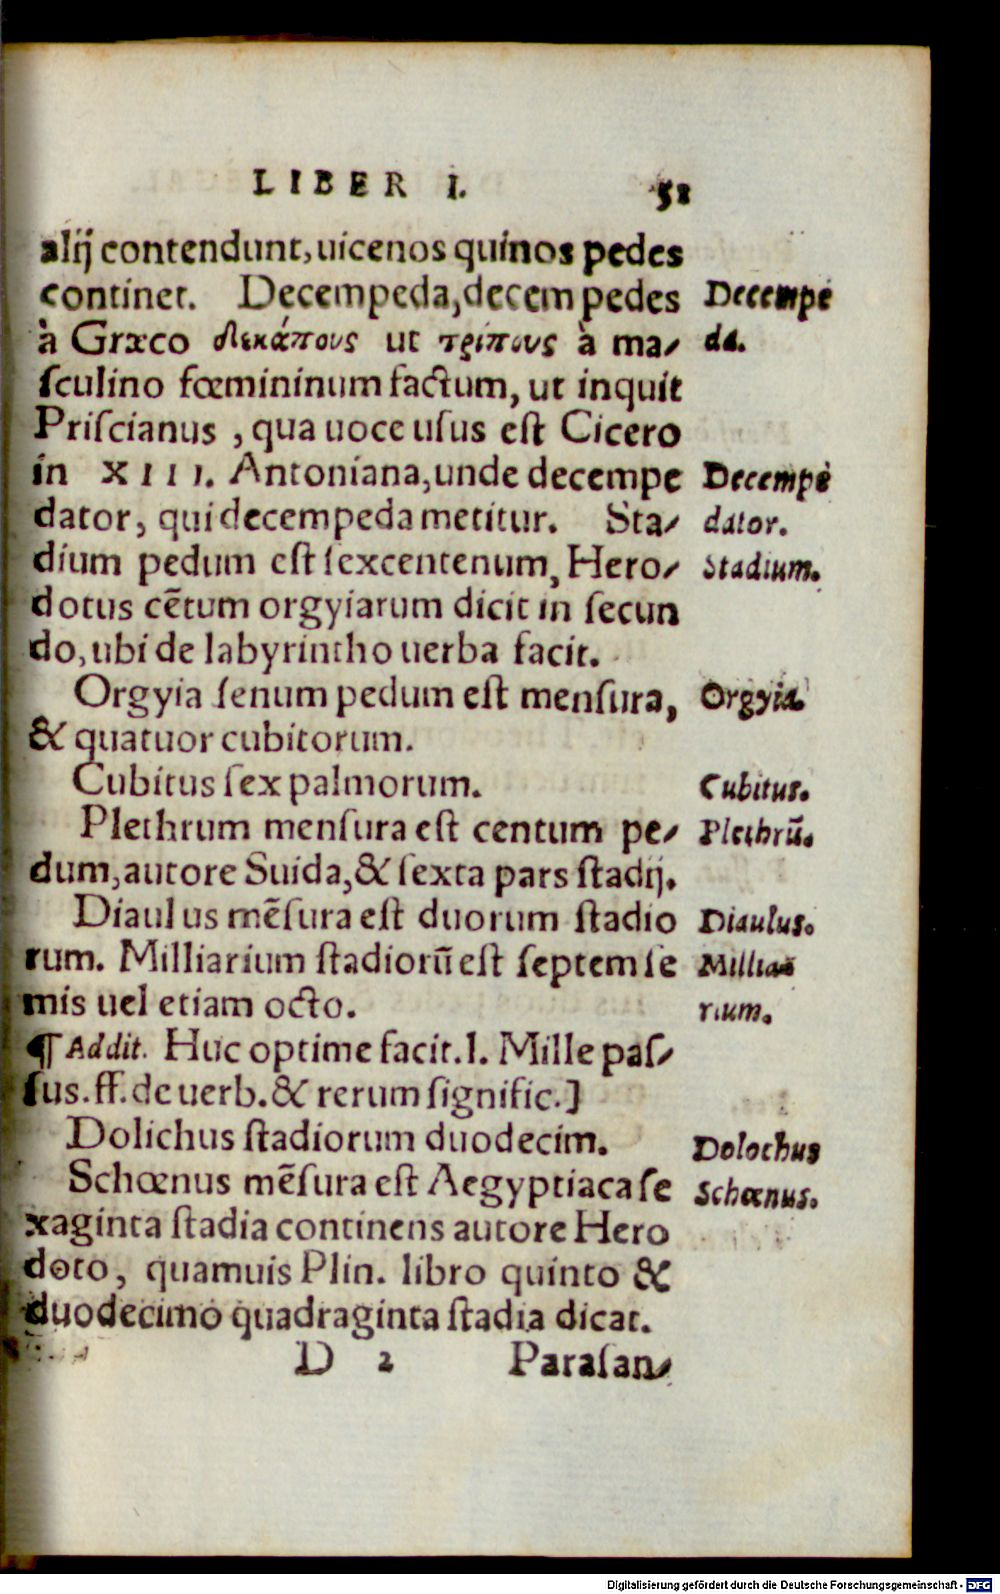 LIBER I. 51
alij contendunt, uicenos quinos pedes
continet. Decempeda, decem pedes Decempe
à Græco δεκάπους ut τρίπους à ma- da.
ſculino fœmininum factum, ut inquit
Priſcianus, qua uoce uſus eſt Cicero
in XIII. Antoniana, unde decempe Decempe
dator, qui decempeda metitur. Sta- dator.
dium pedum eſt ſexcentenum, Hero- Stadium.
dotus cẽtum orgyiarum dicit in ſecun
do, ubi de labyrintho uerba facit.
Orgyia ſenum pedum eſt menſura, Orgyia.
& quatuor cubitorum.
Cubitus ſex palmorum. Cubitus.
Plethrum menſura eſt centum pe- Plethrũ.
dum, autore Suida, & ſexta pars ſtadij.
Diaulus mẽſura eſt duorum ſtadio Diaulus.
rum. Milliarium ſtadiorũ eſt ſeptem ſe Millia
mis uel etiam octo. rium.
¶ Addit. Huc optime facit. l. Mille paſ-
ſus. ff. de uerb. & rerum ſignific.]
Dolichus ſtadiorum duodecim. Dolochus
Schœnus mẽſura eſt Aegyptiaca ſe Schœnus.
xaginta ſtadia continens autore Hero
doto, quamuis Plin. libro quinto &
duodecimo quadraginta ſtadia dicat.
D 2 Paraſan-
Digitalisierung gefördert durch die Deutsche Forschungsgemeinschaft - DFG